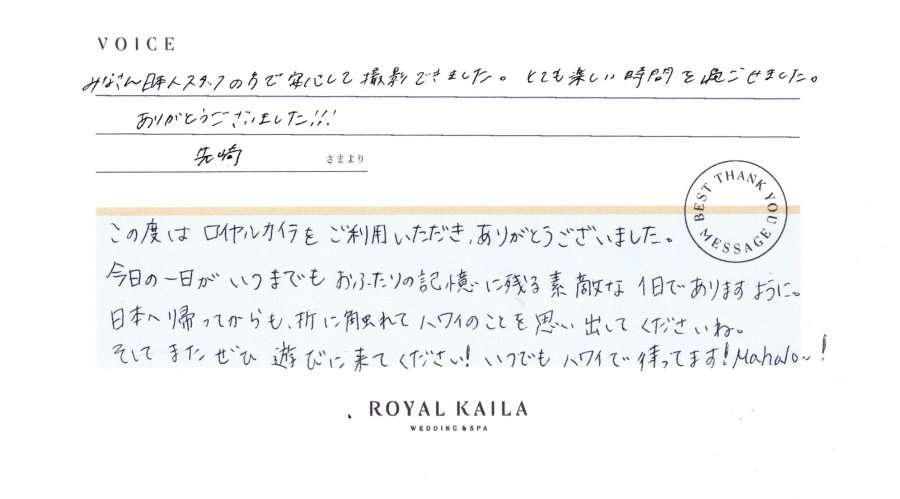 VOICE
みなさん日本人スタッフの方で安心して撮影できました。とても楽しい時間を過ごせました。
ありがとうございました!!!
先崎 さまより
BEST THANK YOU MESSAGE
この度は ロイヤルカイラを ご利用いただき、ありがとうございました。
今日の一日が いつまでも おふたりの記憶に残る素敵な 1日でありますように。
日本へ帰ってからも、折に触れて ハワイのことを思い出してくださいね。
そして また ぜひ 遊びに来てください! いつでも ハワイで待ってます! Mahalo〜!
ROYAL KAILA
WEDDING & SPA